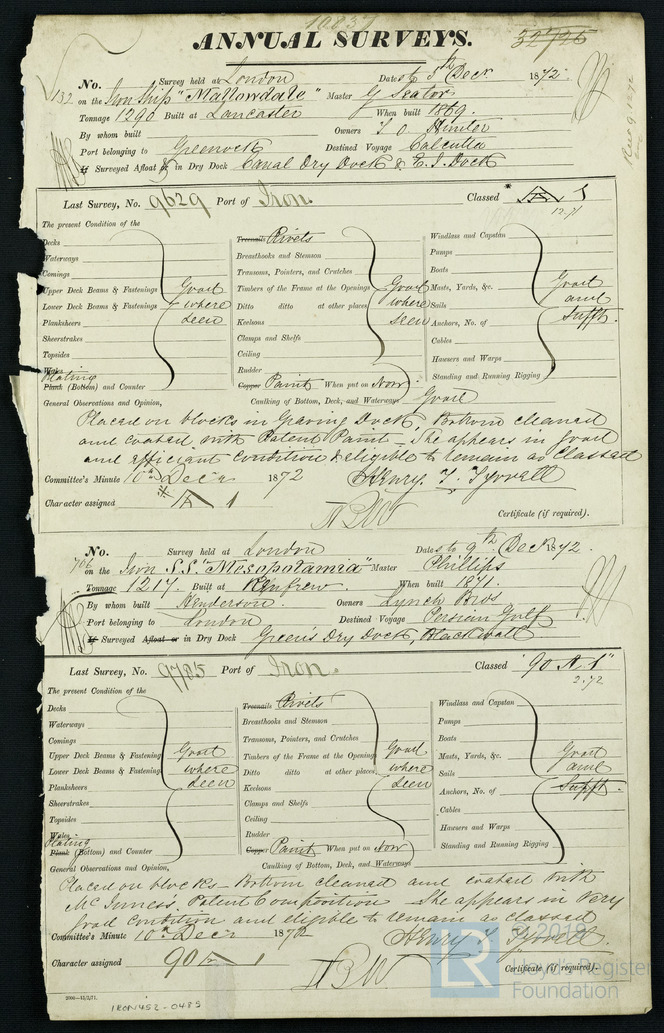 10837
32725
ANNUAL SURVEYS.
No. Survey held at London Date 5th Decr 1872.
132 on the Iron Ship "Mallowdale" Master G Seator
Tonnage 1290 Built at Lancaster When built 1869.
By whom built Owners T O Hunter
Port belonging to Greenock Destined Voyage Calcutta
If Surveyed Afloat or in Dry Dock Canal Dry Dock & E. I. Dock
Recd 9.12.72
Last Survey, No. 9629 Port of Iron. Classed A 1
12.71
The present Condition of the
Decks
Waterways
Comings
Upper Deck Beams & Fastenings Good
Lower Deck Beams & Fastenings where
Planksheers seen
Sheerstrakes
Topsides
Wales
Plating
Plank (Bottom) and Counter
Treenails Rivets
Breasthooks and Stemson
Transoms, Pointers, and Crutches
Timbers of the Frame at the Openings Good
Ditto ditto at other places where
Keelsons seen
Clamps and Shelfs
Ceiling
Rudder
Copper Paint When put on Now
Caulking of Bottom, Deck, and Waterways Good
Windlass and Capstan
Pumps
Boats
Masts, Yards, &c. Good
Sails and
Anchors, No. of Sufft.
Cables
Hawsers and Warps
Standing and Running Rigging
General Observations and Opinion,
Placed on blocks in Graving Dock, Bottom cleaned
and coated with Patent Paint – She appears in good
and efficient condition & eligible to remain as Classed
Committee's Minute 10th Decr 1872 Henry T. Tyrrell
Character assigned A 1
Certificate (if required).
No. Survey held at London Date 9th Decr 1872.
766 on the Iron S.S. "Mesopotamia" Master Phillips
Tonnage 1217. Built at Renfrew. When built 1871.
By whom built Henderson. Owners Lynch Bros
Port belonging to London Destined Voyage Persian Gulf
If Surveyed Afloat or in Dry Dock Green's Dry Dock, Blackwall
Last Survey, No. 9785 Port of Iron. Classed "90 A 1"
2.72
The present Condition of the
Decks
Waterways
Comings
Upper Deck Beams & Fastenings Good
Lower Deck Beams & Fastenings where
Planksheers seen
Sheerstrakes
Topsides
Wales
Plating
Plank (Bottom) and Counter
Treenails Rivets
Breasthooks and Stemson
Transoms, Pointers, and Crutches
Timbers of the Frame at the Openings Good
Ditto ditto at other places where
Keelsons seen
Clamps and Shelfs
Ceiling
Rudder
Copper Paint When put on Now
Caulking of Bottom, Deck, and Waterways
Windlass and Capstan
Pumps
Boats
Masts, Yards, &c. Good
Sails and
Anchors, No. of Sufft.
Cables
Hawsers and Warps
Standing and Running Rigging
General Observations and Opinion,
Placed on blocks – Bottom cleaned and coated with
McInness. Patent Composition – She appears in very
good condition and eligible to remain as classed
Committee's Minute 10th Decr 1872 Henry T Tyrrell.
Character assigned 90 A 1
Certificate (if required).
2000—12/2/71.
IRON452-0483
LR © 2019
Lloyd's Register
Foundation